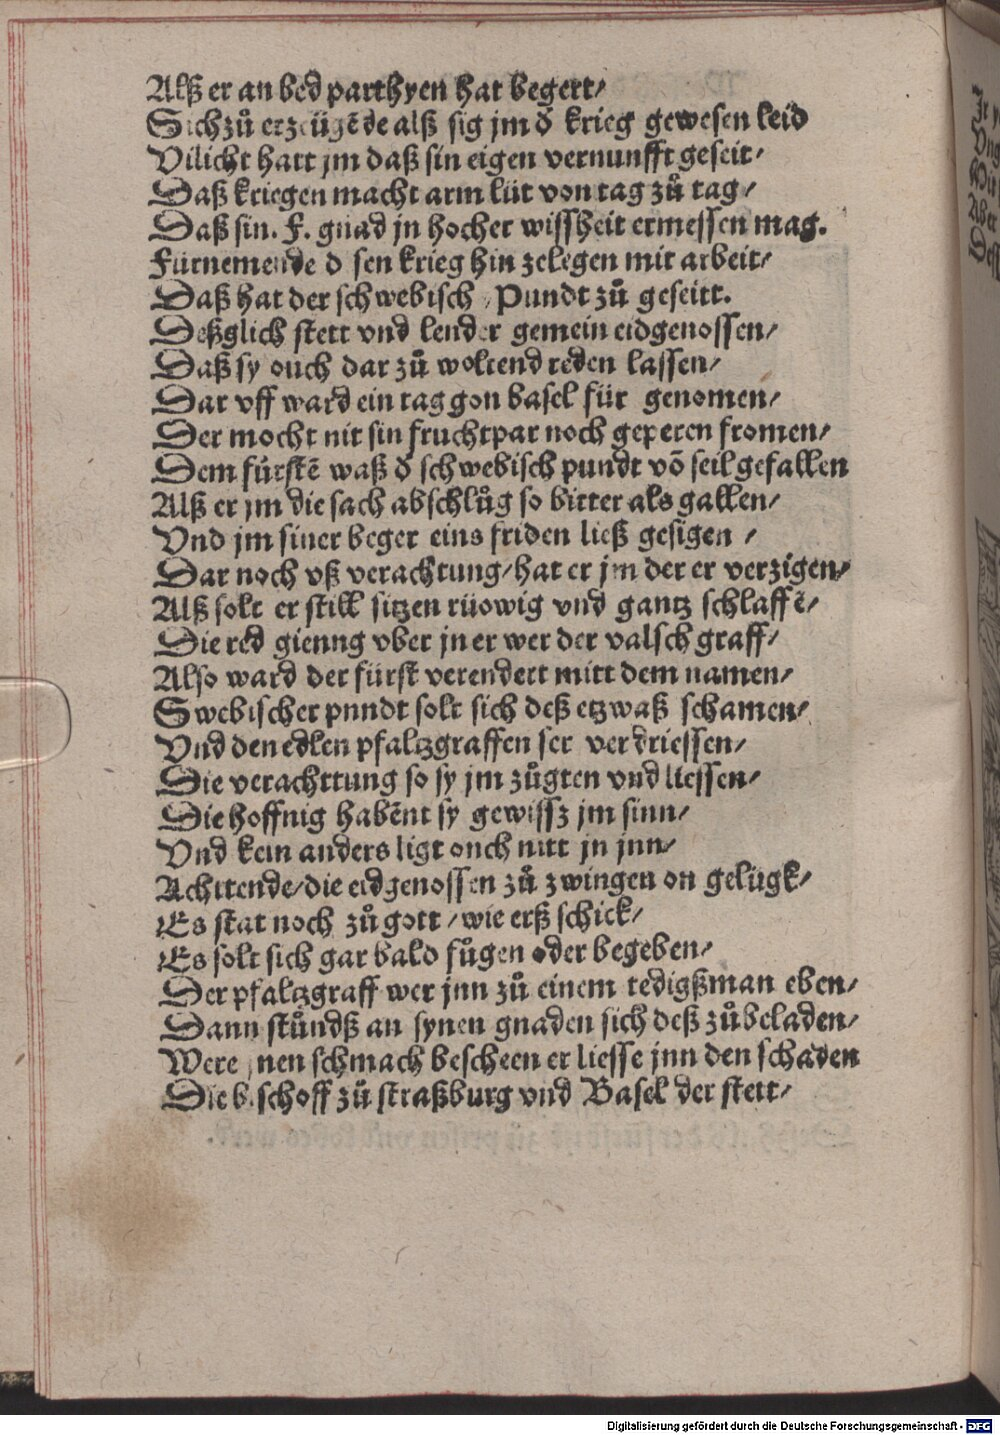 Alß er an bed parthyen hat begert/
Sich zů erzeügēde alß sig jm d̓ krieg gewesen leid
Vilicht hatt jm daß sin eigen vernunfft geseit/
Daß kriegen macht arm lüt von tag zů tag/
Daß sin. F. gnad jn hocher wissheit ermessen mag.
Fürnemende d sen krieg hin zelegen mit arbeit/
Daß hat der schwebisch Pundt zů geseitt.
Deßglich stett vnd lender gemein eidgenossen/
Daß sy ouch dar zů woltend reden lassen/
Dar vff ward ein tag gon basel für genomen/
Der mocht nit sin fruchtpar noch geperen fromen/
Dem fürstē waß d̓ schwebisch pundt võ seil gefallen
Alß er jm die sach abschlůg so bitter als gallen/
Vnd jm siner beger eins friden ließ gesigen /
Dar noch vß verachtung/hat er jm der er verzigen/
Alß solt er still sitzen rüowig vnd gantz schlaffē/
Die red gienng vber jn er wer der valsch graff/
Also ward der fürst verendert mitt dem namen/
Swebischer pnndt solt sich deß etzwaß schamen/
Vnd den edlen pfaltzgraffen ser verdriessen/
Die verachttung so sy jm zůgten vnd liessen/
Die hoffnig habēnt sy gewissz jm sinn/
Vnd kein anders ligt onch nitt jn jnn/
Achttende/die eidgenossen zů zwingen on gelügk/
Es stat noch zů gott/wie erß schick/
Es solt sich gar bald fůgen oder begeben/
Der pfaltzgraff wer jnn zů einem tedigßman eben/
Dann stůndß an synen gnaden sich deß zů beladen/
Were jnen schmach bescheen er liesse jnn den schaden
Die bischoff zů straßburg vnd Basel der stett/
Digitalisierung gefördert durch die Deutsche Forschungsgemeinschaft - DFG